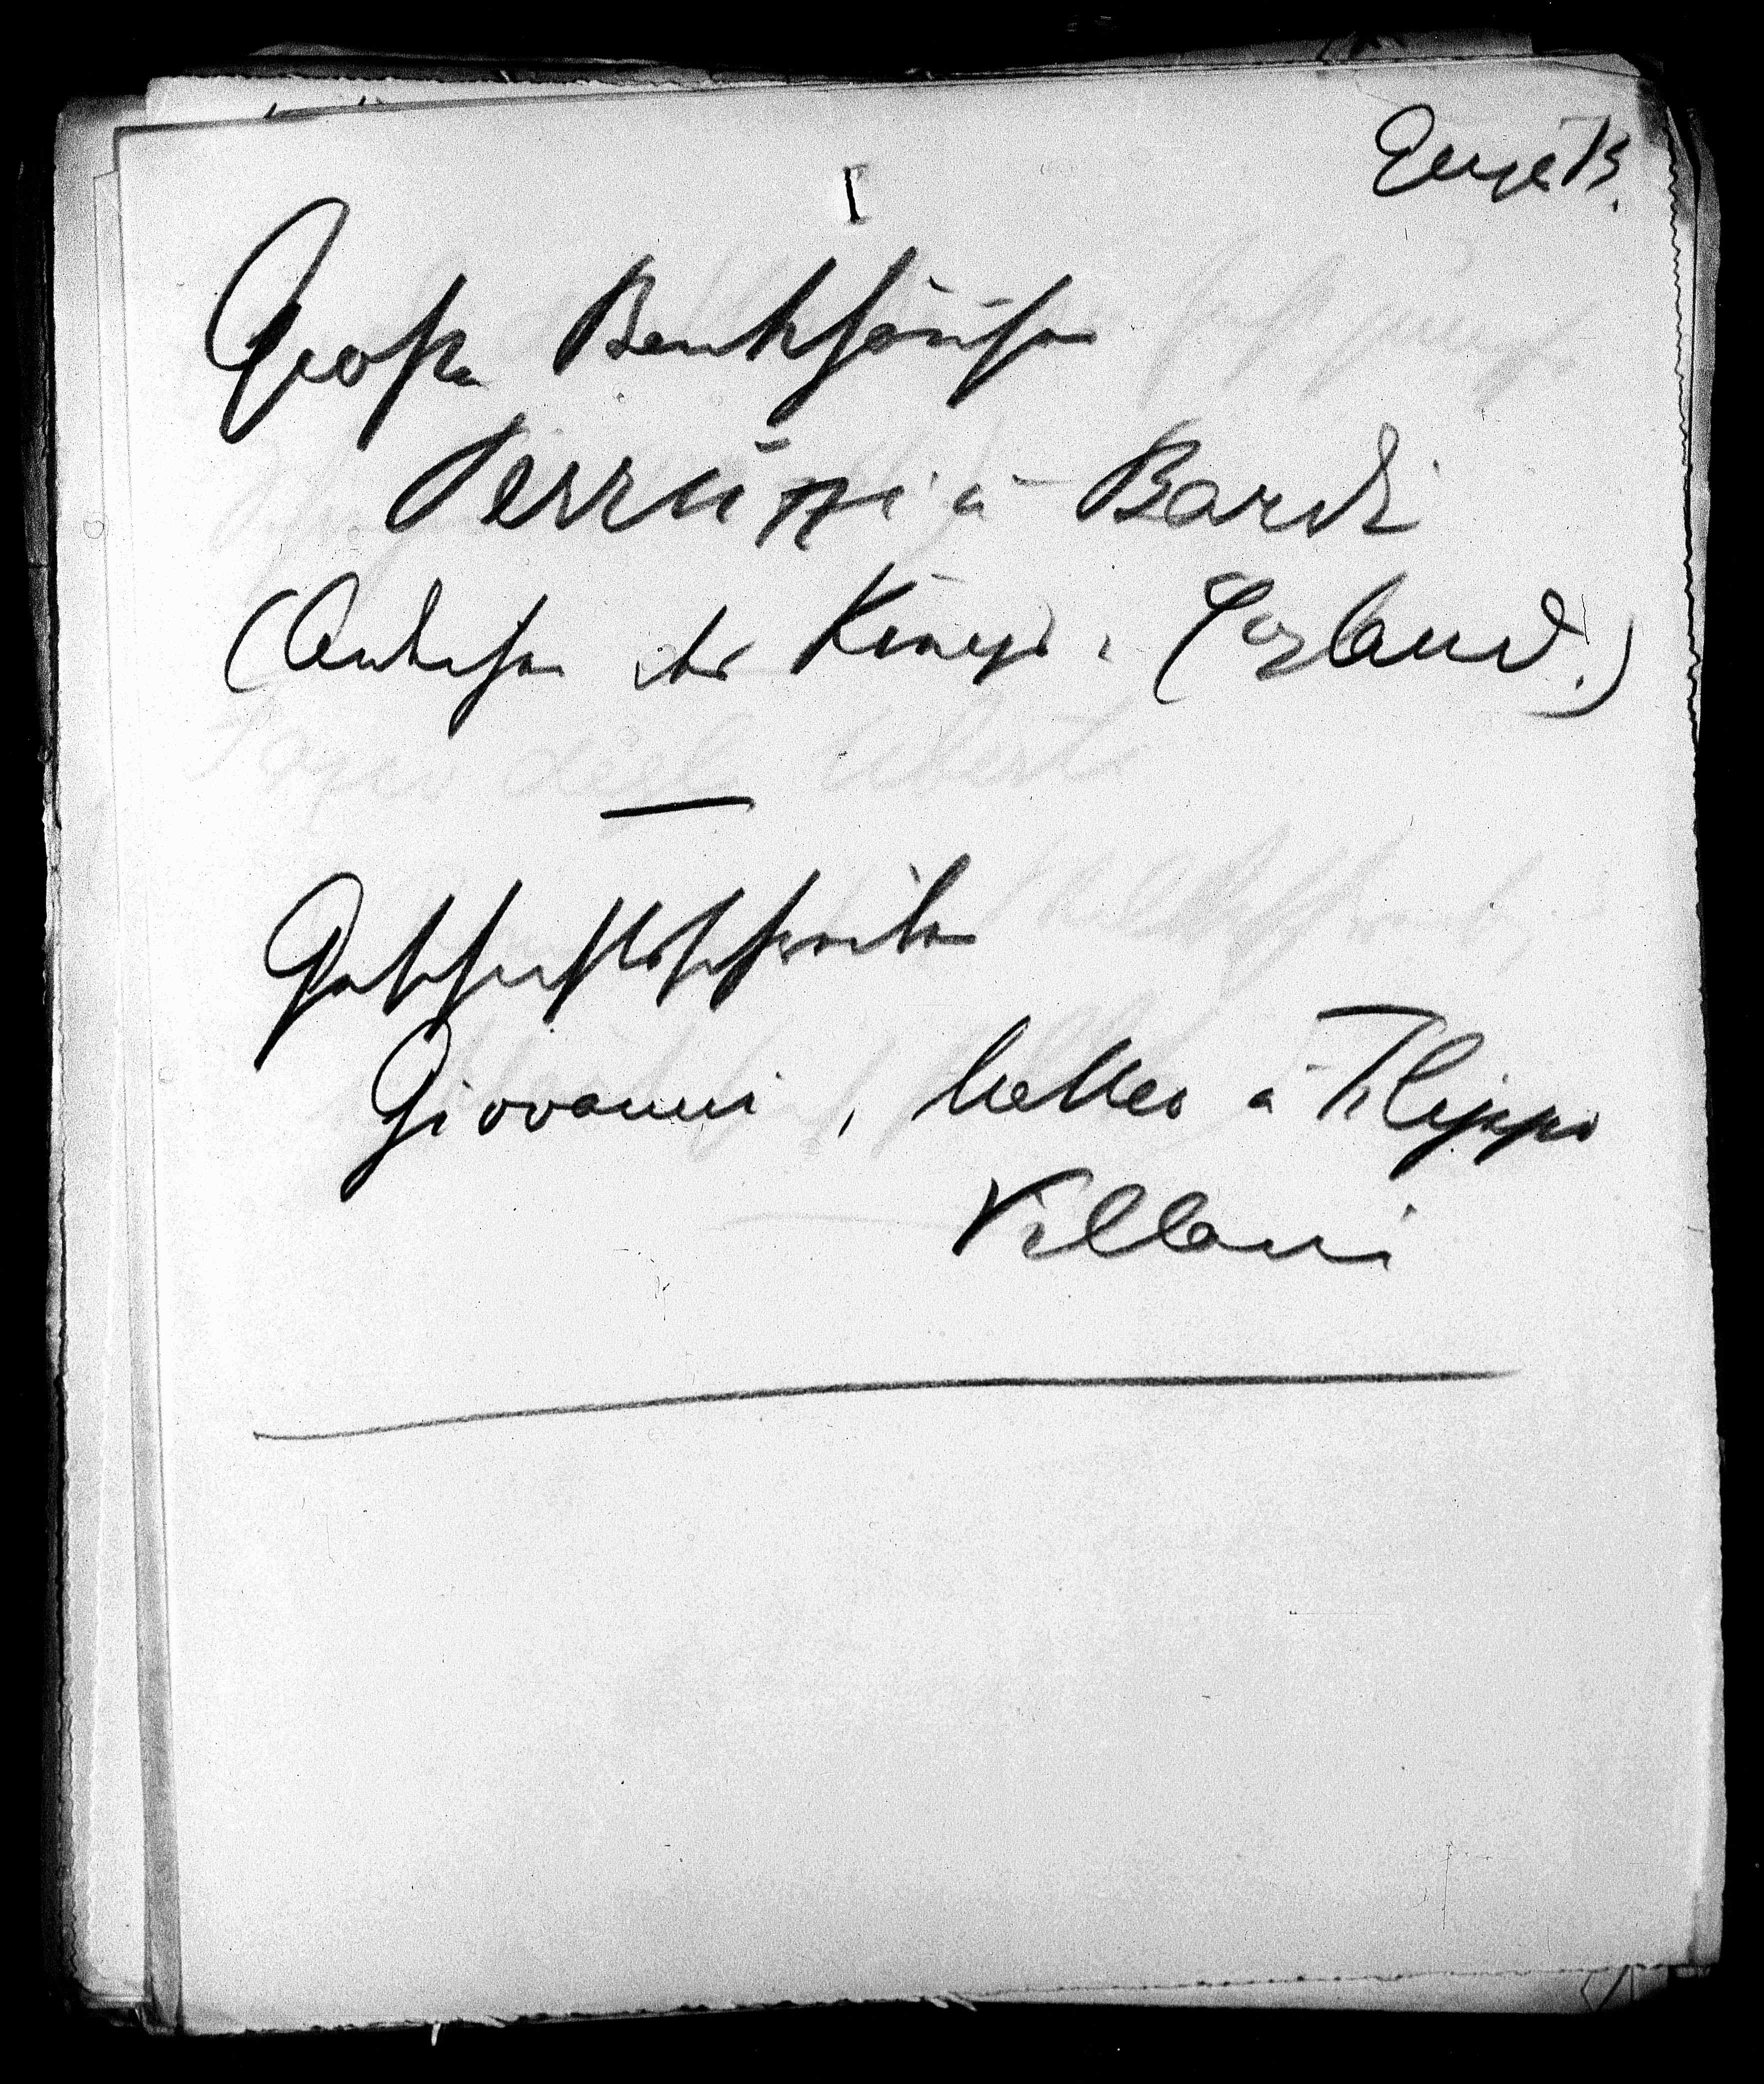 I
Große Bankhäuser
Perruzzi u Bardi
(Anleihen der Könige v. England.)
Geschichtschreiber
Giovanni, Matteo u Filippo
Villani